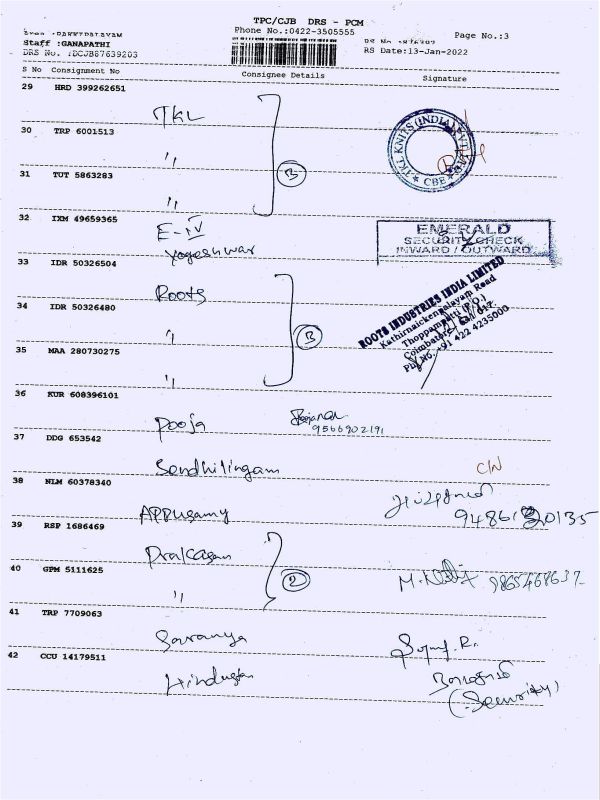 TPC/CJB DRS - PCM
Phone No.:0422-3505555
Page No.:3
Staff :GANAPATHI
DRS No. :DCJB87639203
RS Date:13-Jan-2022
S No Consignment No Consignee Details Signature
29 HRD 399262651
TKL
30 TRP 6001513
"
31 TUT 5863283
"
3
32 IXM 49659365
E-IV
Yogeshwar
33 IDR 50326504
Roots
34 IDR 50326480
"
35 MAA 280730275
"
3
36 KUR 608396101
Pooja
9566902191
37 DDG 653542
Sendhilingam
C/N
38 NLM 60378340
Appusamy
39 RSP 1686469
Prakasam
40 GPM 5111625
"
2
9865468637
41 TRP 7709063
Saranya
42 CCU 14179511
Hindustan
(Security)
TKL KNITS (INDIA) PVT LTD
CBE
EMERALD
SECURITY CHECK
INWARD / OUTWARD
ROOTS INDUSTRIES INDIA LIMITED
Kathirnaickenpalayam Road
Thoppampatti (P.O.)
Coimbatore - 641 017.
Ph No. +91 422 4235000